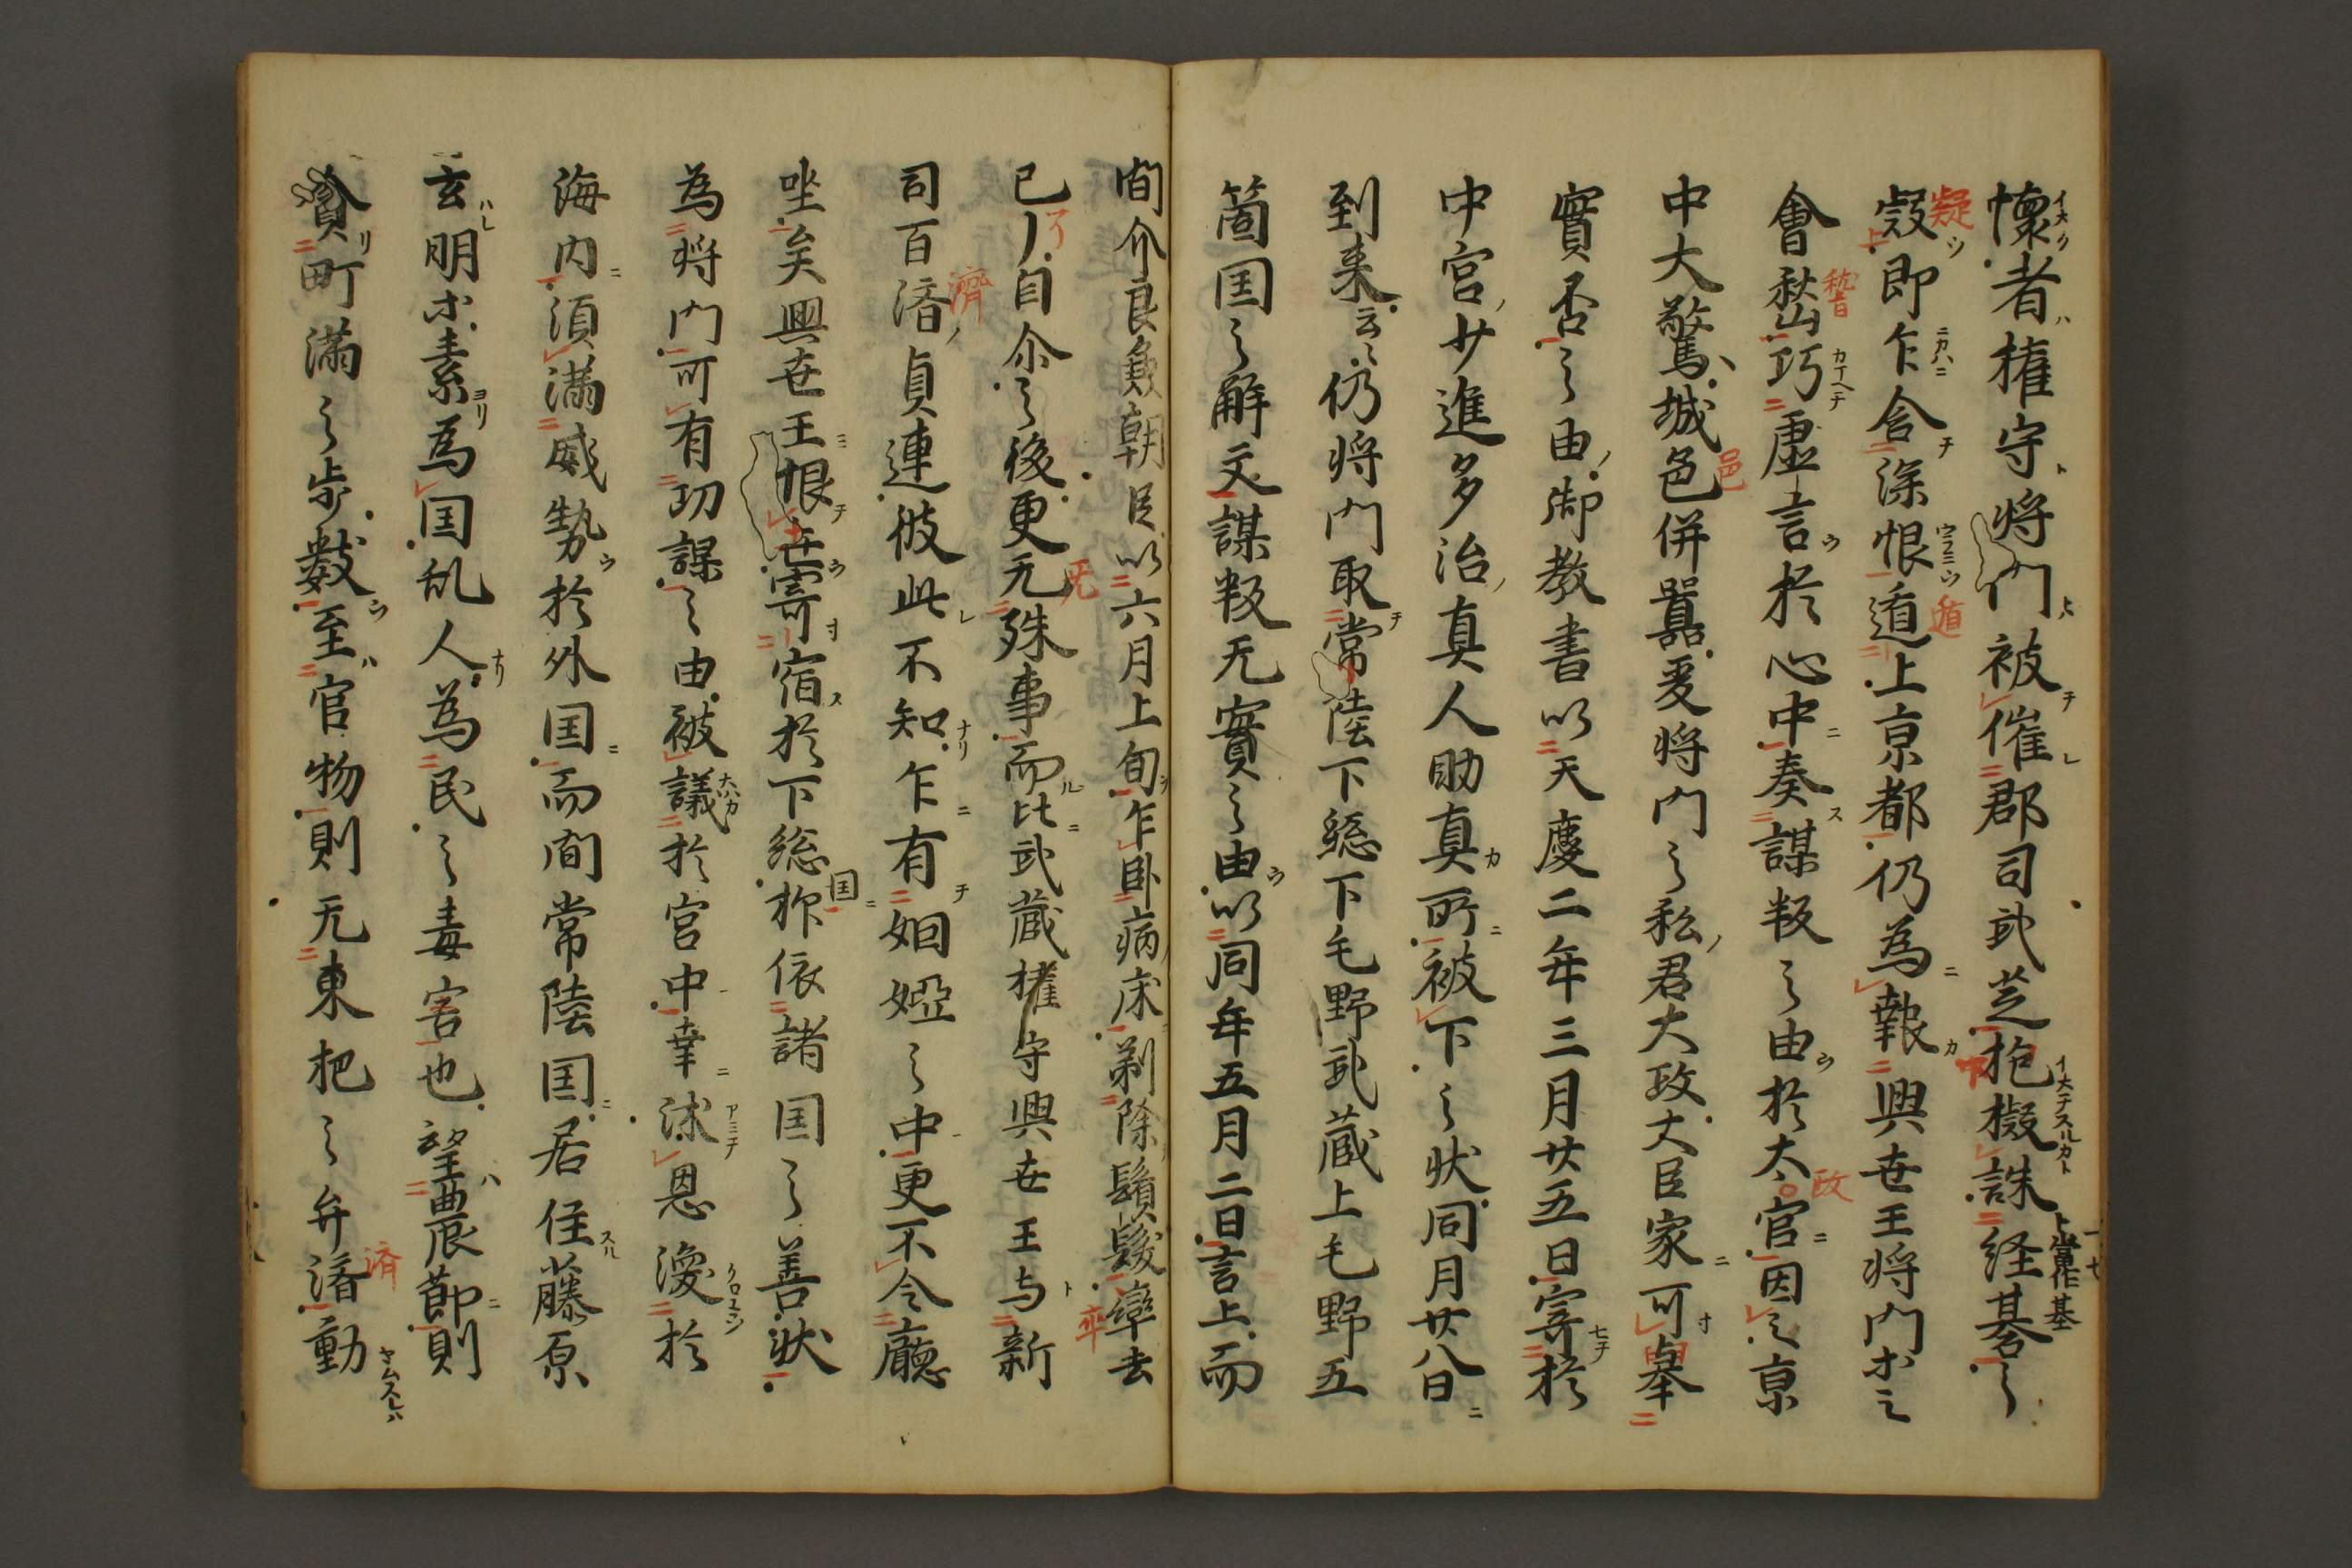 懐者権守将門被催郡司武芝抱擬誅経碁之
疑即乍含深恨遁上京都仍為報興世王将門木之
會嵆巧虚言於心中奏謀叛之由於太官因之京
中大驚城邑併囂爰将門之私君大政大臣家可挙
實否之由御教書以天慶二年三月廿五日寄於
中宮少進多治真人助真所被下之状同月廿八日
到来云々仍将門取常陸下総下毛野武蔵上毛野五
箇国之解文謀叛无實之由以同年五月二日言上而
間介良兼朝臣以六月上旬乍臥病床剃除鬢髪卒去
已了自尓之後更无殊事而比武蔵権守興世王与新
司百済貞連彼此不知乍有姻婭之中更不令廳
坐矣興世王恨世寄宿於下総国抑依諸国之善状
為将門可有功課之由被議於宮中幸沐恩渙於
海内須満威勢於外国而間常陸国居住藤原
玄明木素為国乱人為民之毒害也望農節則
貪町満之歩数至官物則无束把之弁済動